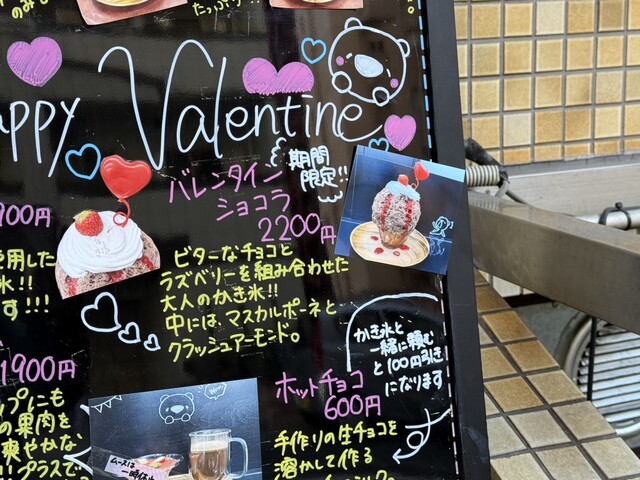 たっぷり!!
Happy Valentine
期間
限定!!
バレンタイン
ショコラ
2200円
900円
使用した
氷!!
す!!!
ビターなチョコと
ラズベリーを組み合わせた
大人のかき氷!!
中には、マスカルポーネと
クラッシュアーモンド。
かき氷と
一緒に頼む
と100円引き
になります
1900円
プにも
の果肉を
爽やかな
プラスで
ホットチョコ
600円
手作りの生チョコを
溶かして作る
ムースは
一時休止